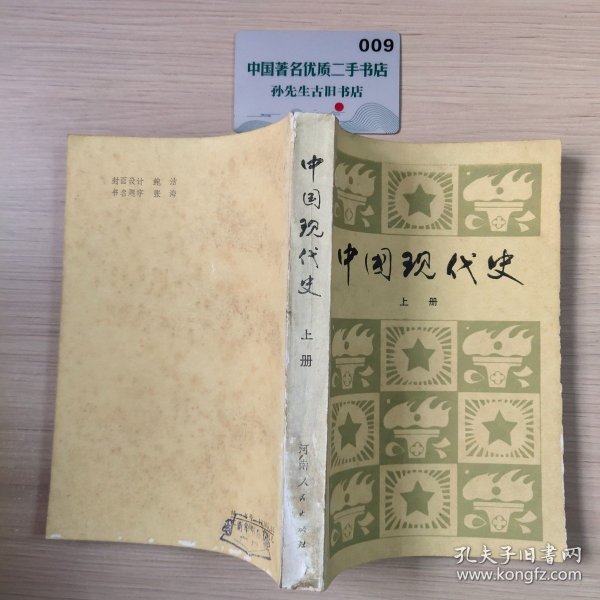 009
中国著名优质二手书店
孙先生古旧书店
封面设计 鲍 洁
书名题字 张 海
中国现代史
上册
河南人民出版社
中国现代史
上 册
孔夫子旧书网
www.kongfz.com